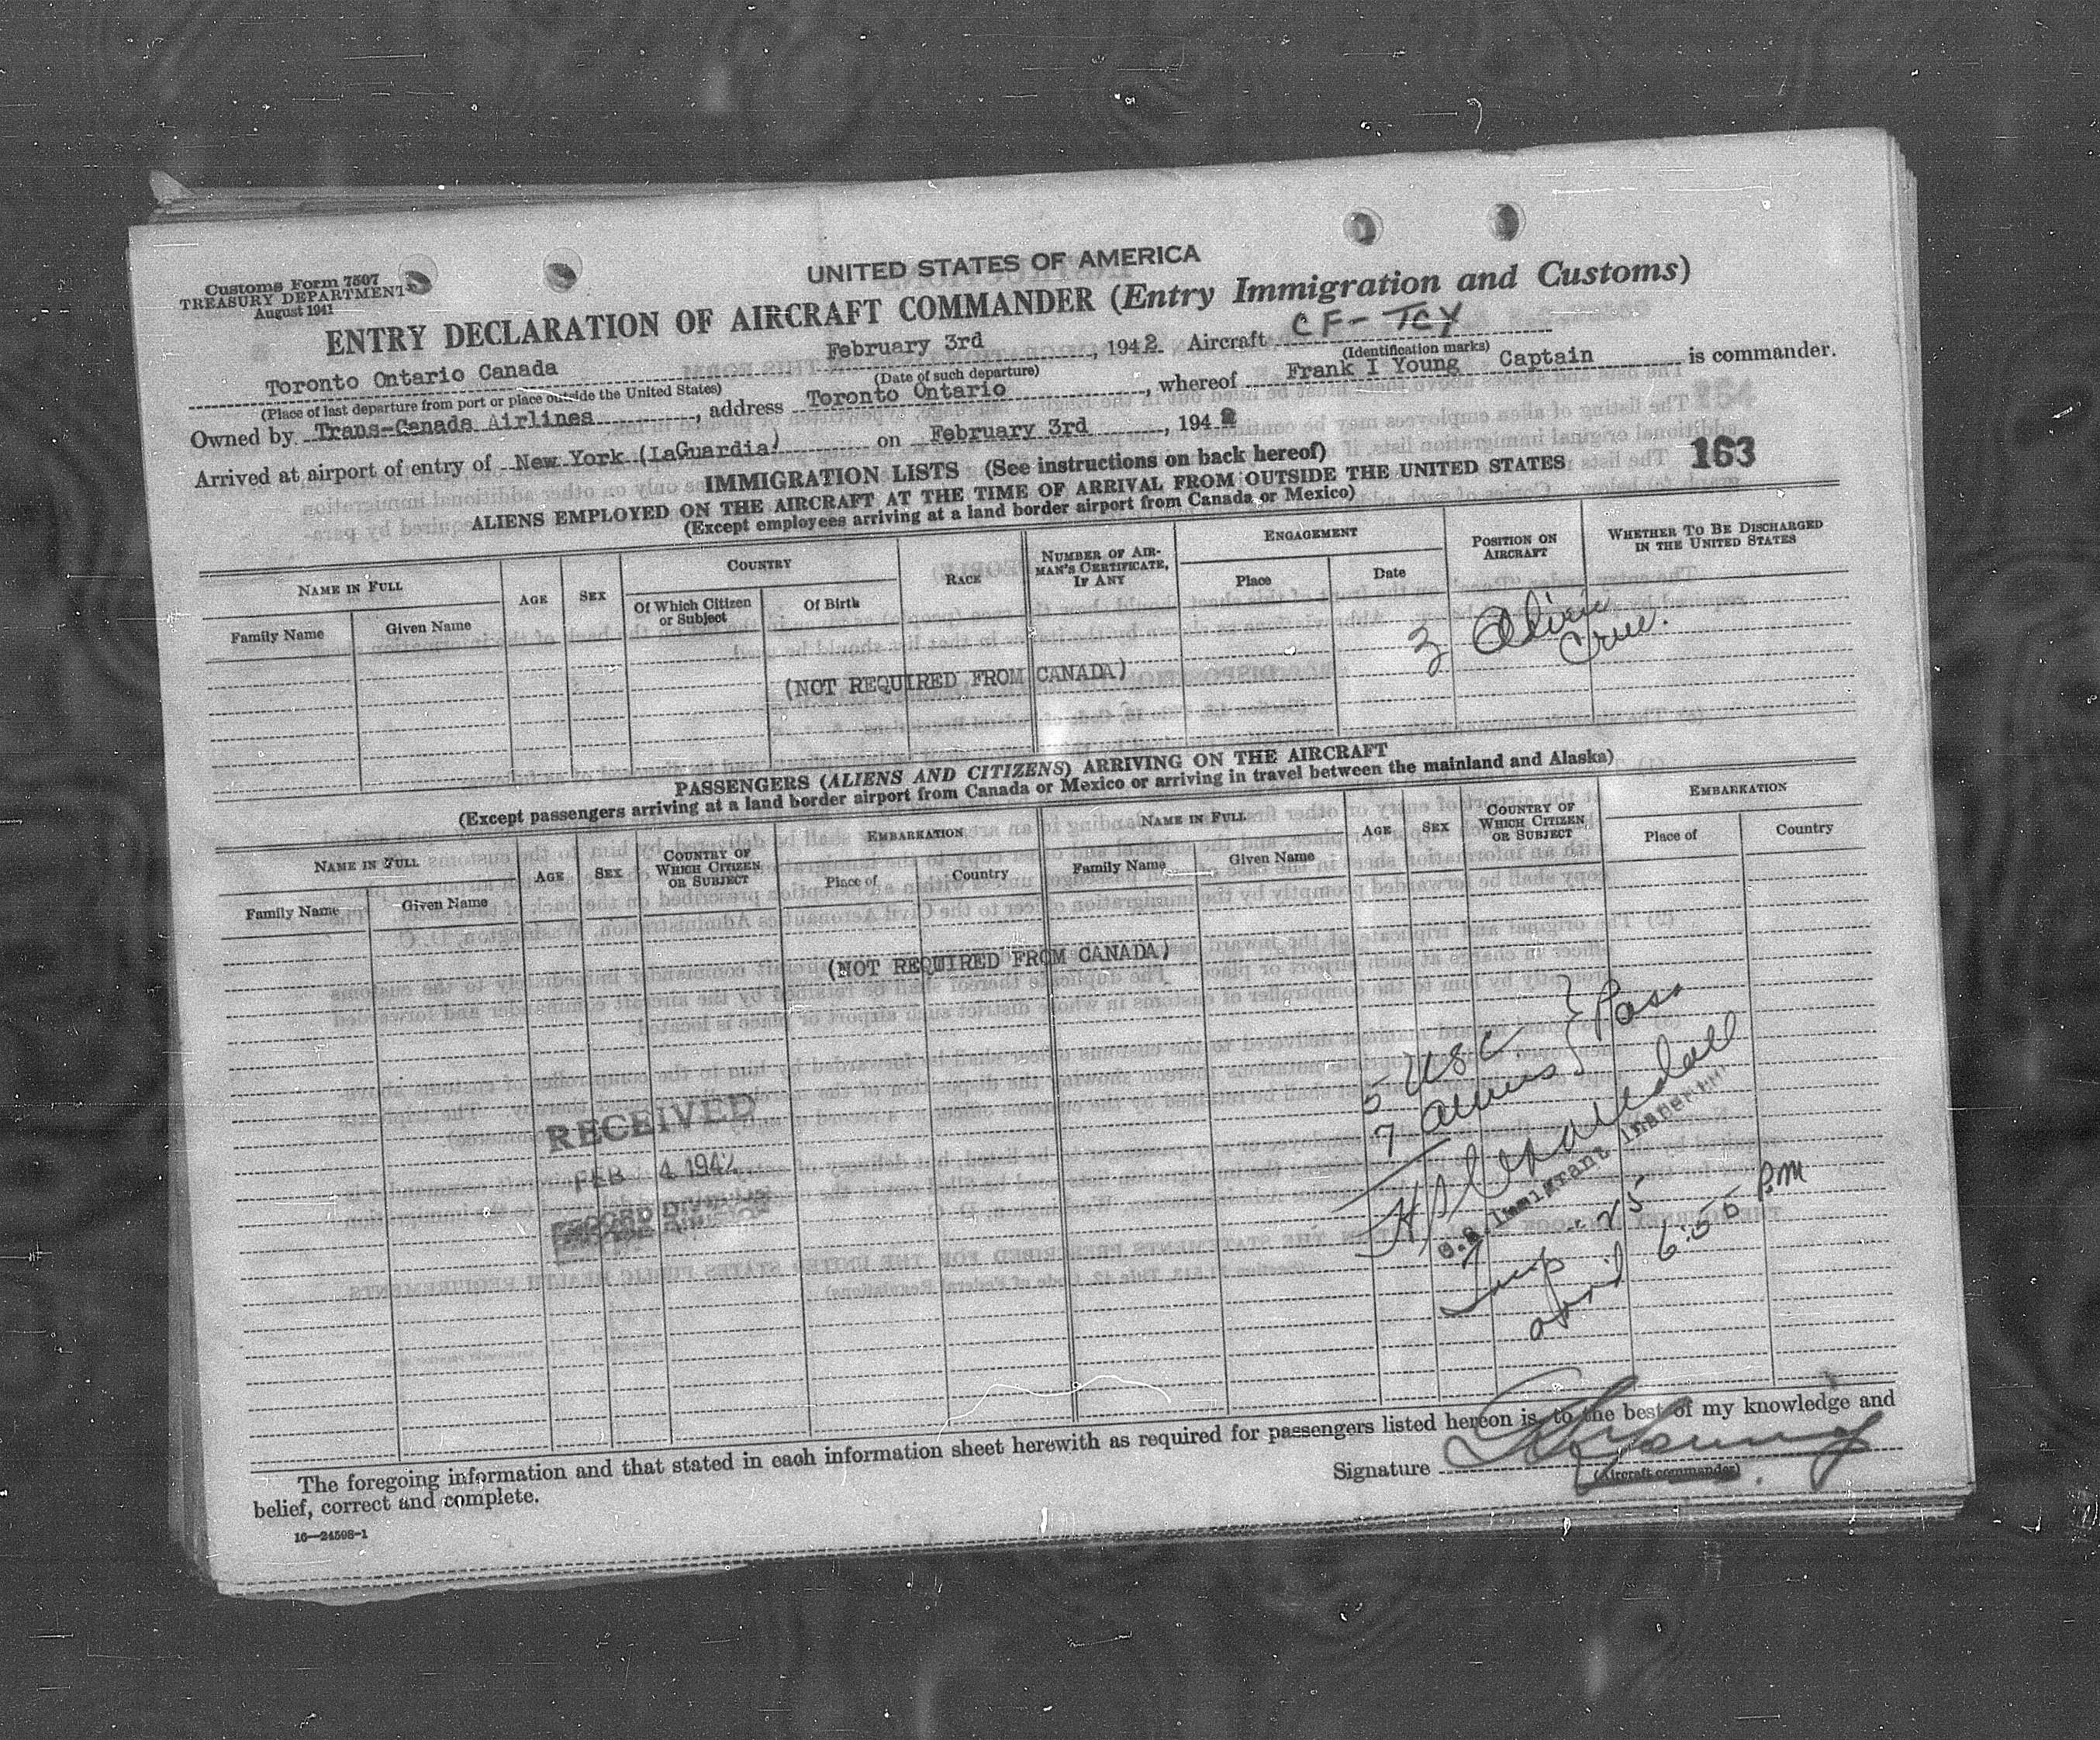 Customs Form 7507
TREASURY DEPARTMENT
August 1941
UNITED STATES OF AMERICA
ENTRY DECLARATION OF AIRCRAFT COMMANDER (Entry Immigration and Customs)
Toronto Ontario Canada February 3rd, 1942 Aircraft CF-TCY
(Place of last departure from port or place outside the United States) (Date of such departure) (Identification marks)
Owned by Trans-Canada Airlines, address Toronto Ontario, whereof Frank I Young Captain is commander.
Arrived at airport of entry of New York (LaGuardia) on February 3rd, 1942
163
IMMIGRATION LISTS (See instructions on back hereof)
ALIENS EMPLOYED ON THE AIRCRAFT AT THE TIME OF ARRIVAL FROM OUTSIDE THE UNITED STATES
(Except employees arriving at a land border airport from Canada or Mexico)
NAME IN FULL AGE SEX COUNTRY RACE NUMBER OF AIRMAN'S CERTIFICATE, IF ANY ENGAGEMENT POSITION ON AIRCRAFT WHETHER TO BE DISCHARGED IN THE UNITED STATES
Family Name Given Name Of Which Citizen or Subject Of Birth Place Date
3 Alien
Crew.
(NOT REQUIRED FROM CANADA)
PASSENGERS (ALIENS AND CITIZENS) ARRIVING ON THE AIRCRAFT
(Except passengers arriving at a land border airport from Canada or Mexico or arriving in travel between the mainland and Alaska)
NAME IN FULL AGE SEX COUNTRY OF WHICH CITIZEN OR SUBJECT EMBARKATION NAME IN FULL AGE SEX COUNTRY OF WHICH CITIZEN OR SUBJECT EMBARKATION
Family Name Given Name Place of Country Family Name Given Name Place of Country
(NOT REQUIRED FROM CANADA)
5 USC } Pass
7 aliens
RECEIVED
FEB 4 1942
RECORD DIVISION
U.S. Immigrant Inspector
Trip - 25
6:55 PM
The foregoing information and that stated in each information sheet herewith as required for passengers listed hereon is, to the best of my knowledge and
belief, correct and complete.
Signature Young
(Aircraft commander)
16—24598-1